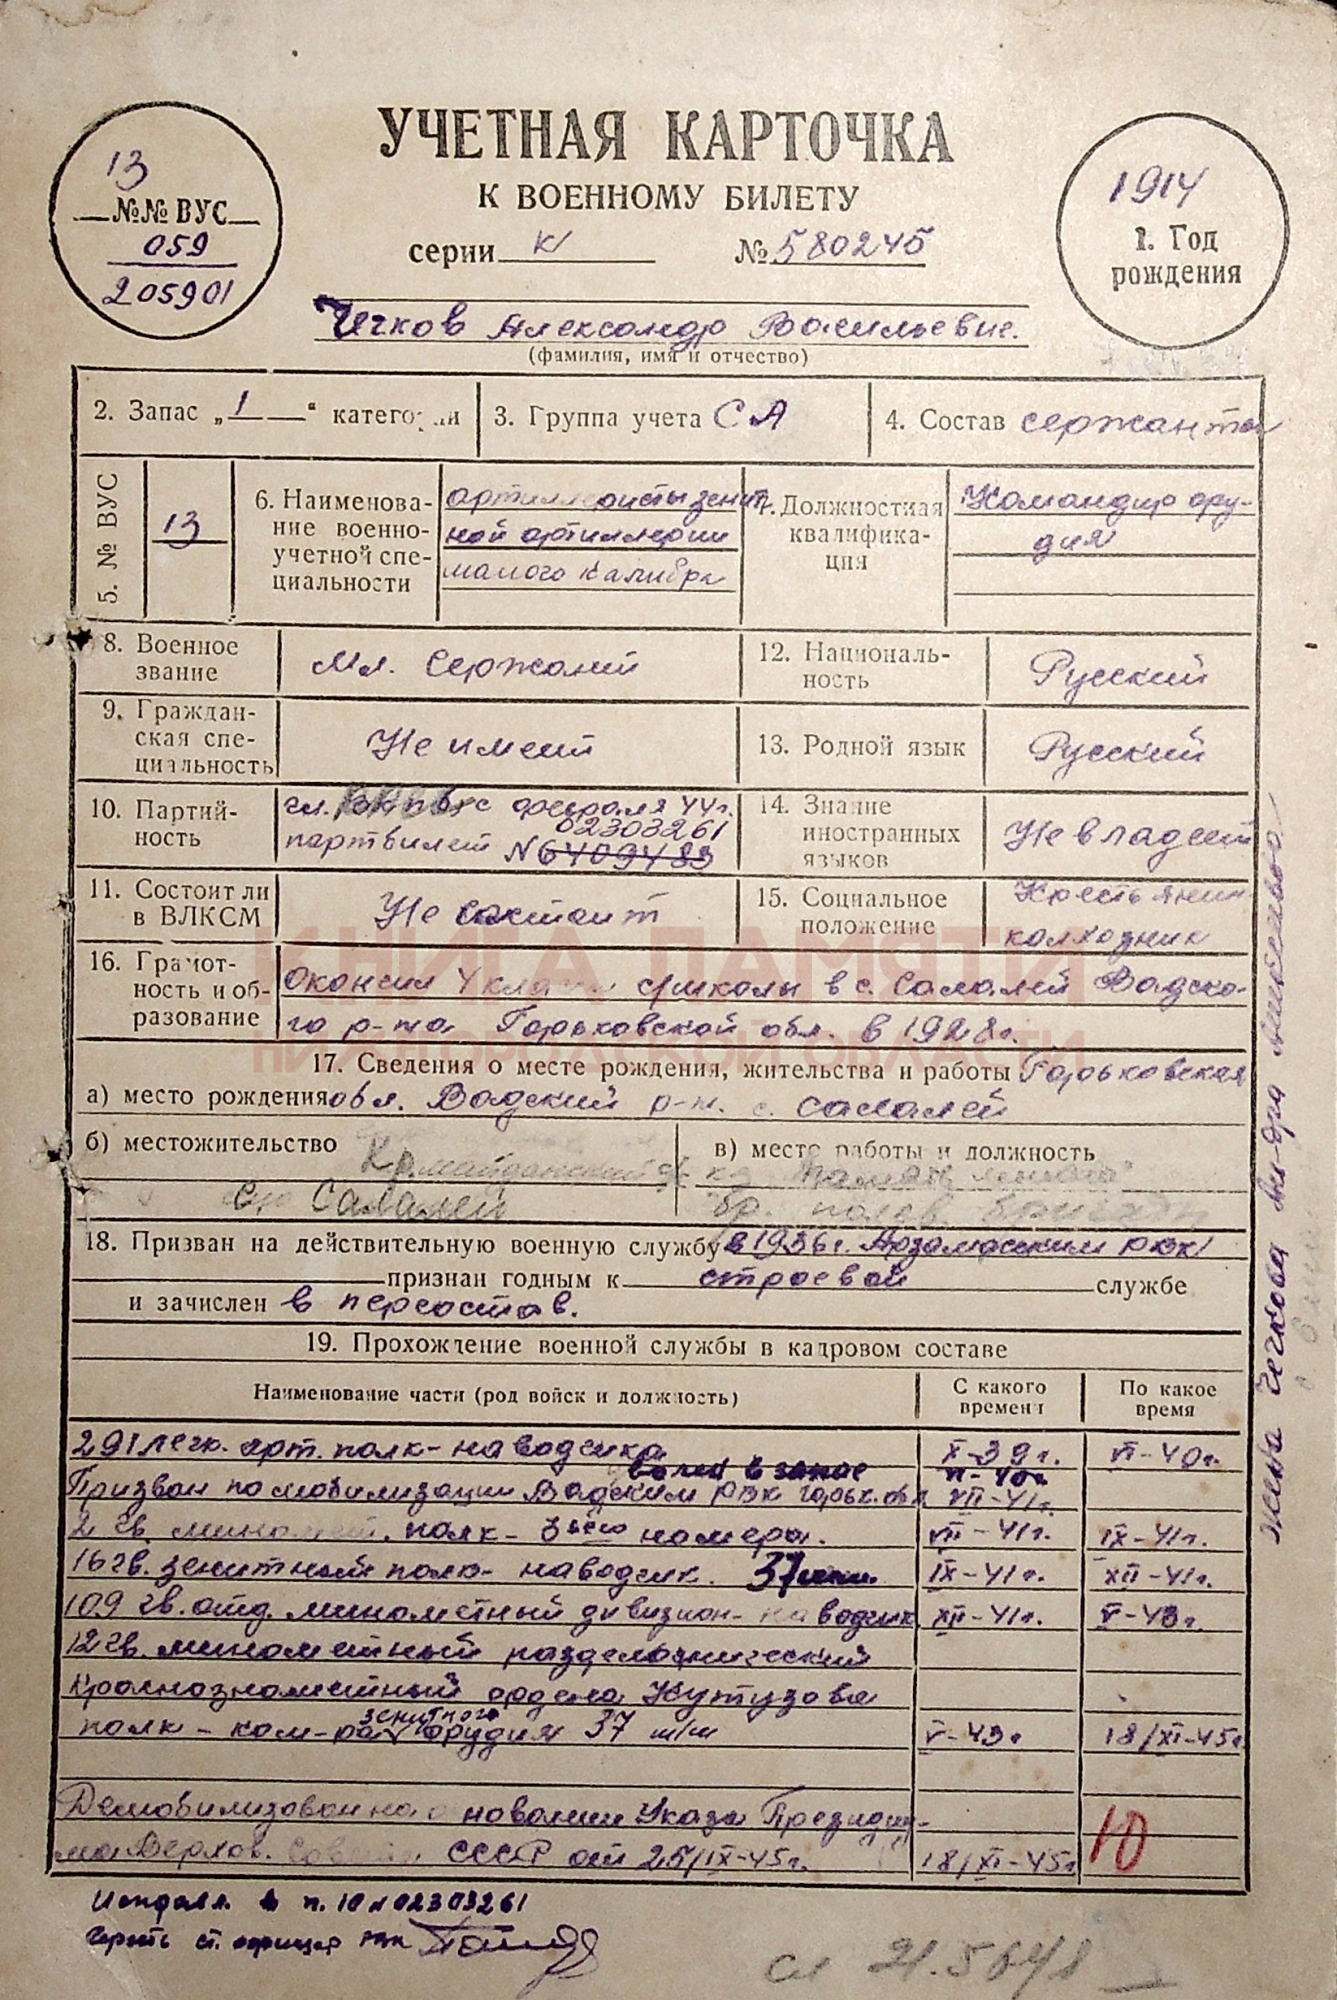 УЧЕТНАЯ КАРТОЧКА
К ВОЕННОМУ БИЛЕТУ
серии К № 580245
13
№№ ВУС
059
205901
1914
1. Год
рождения
Чечков Александр Васильевич.
(фамилия, имя и отчество)
2. Запас „1“ категории
3. Группа учета СА
4. Состав сержанты
5. № ВУС
13
6. Наименова-
ние военно-
учетной спе-
циальности
артиллеристы зенит-
ной артиллерии
малого калибра
7. Должностная
квалифика-
ция
Командир ору-
дия
8. Военное
звание
Мл. Сержант
12. Националь-
ность
Русский
9. Граждан-
ская спе-
циальность
Не имеет
13. Родной язык
Русский
10. Партий-
ность
чл. ВКПб с февраля 44 г.
02303261
партбилет № 6409483
14. Знание
иностранных
языков
Не владеет
11. Состоит ли
в ВЛКСМ
Не состоит
15. Социальное
положение
Крестьянин
колхозник
16. Грамот-
ность и об-
разование
Окончил 4 класса с/школы в с. Салалей Вадско-
го р-на Горьковской обл. в 1928 г.
КНИГА ПАМЯТИ
НИЖЕГОРОДСКОЙ ОБЛАСТИ
17. Сведения о месте рождения, жительства и работы Горьковская
а) место рождения обл. Вадский р-н. с. Салалей
б) местожительство
Кр. майданский
Салалей
в) место работы и должность
к-з
бр. полев. бригады
18. Призван на действительную военную службу в 1936 г. Арзамасским РВК
признан годным к строевой службе
и зачислен в персостав.
19. Прохождение военной службы в кадровом составе
Наименование части (род войск и должность)
С какого
времени
По какое
время
291 легк. арт. полк - наводчика X-39 г. VI-40 г.
волен в запас VI-40 г
Призван по мобилизации Вадским РВК горьк. обл VII-41 г.
2 гв. миномет. полк - 3его номера. VII-41 г. IX-41 г.
16 гв. зенитный полк - наводчик. 37 мм. IX-41 г. XII-41 г.
109 гв. отд. минометный дивизион - наводчик XII-41 г. V-43 г.
12 гв. минометный
Краснознаметный ордена Кутузова
зенитного
полк - ком-ра орудия 37 м/м V-43 г 18/XI-45 г.
Демобилизован на основании Указа Президиу-
ма Верхов. Совета СССР от 25/IX-45 г. 18/XI-45 г
10
Исправл. в п. 10 № 02303261
ст. офицер
жена Чечкова